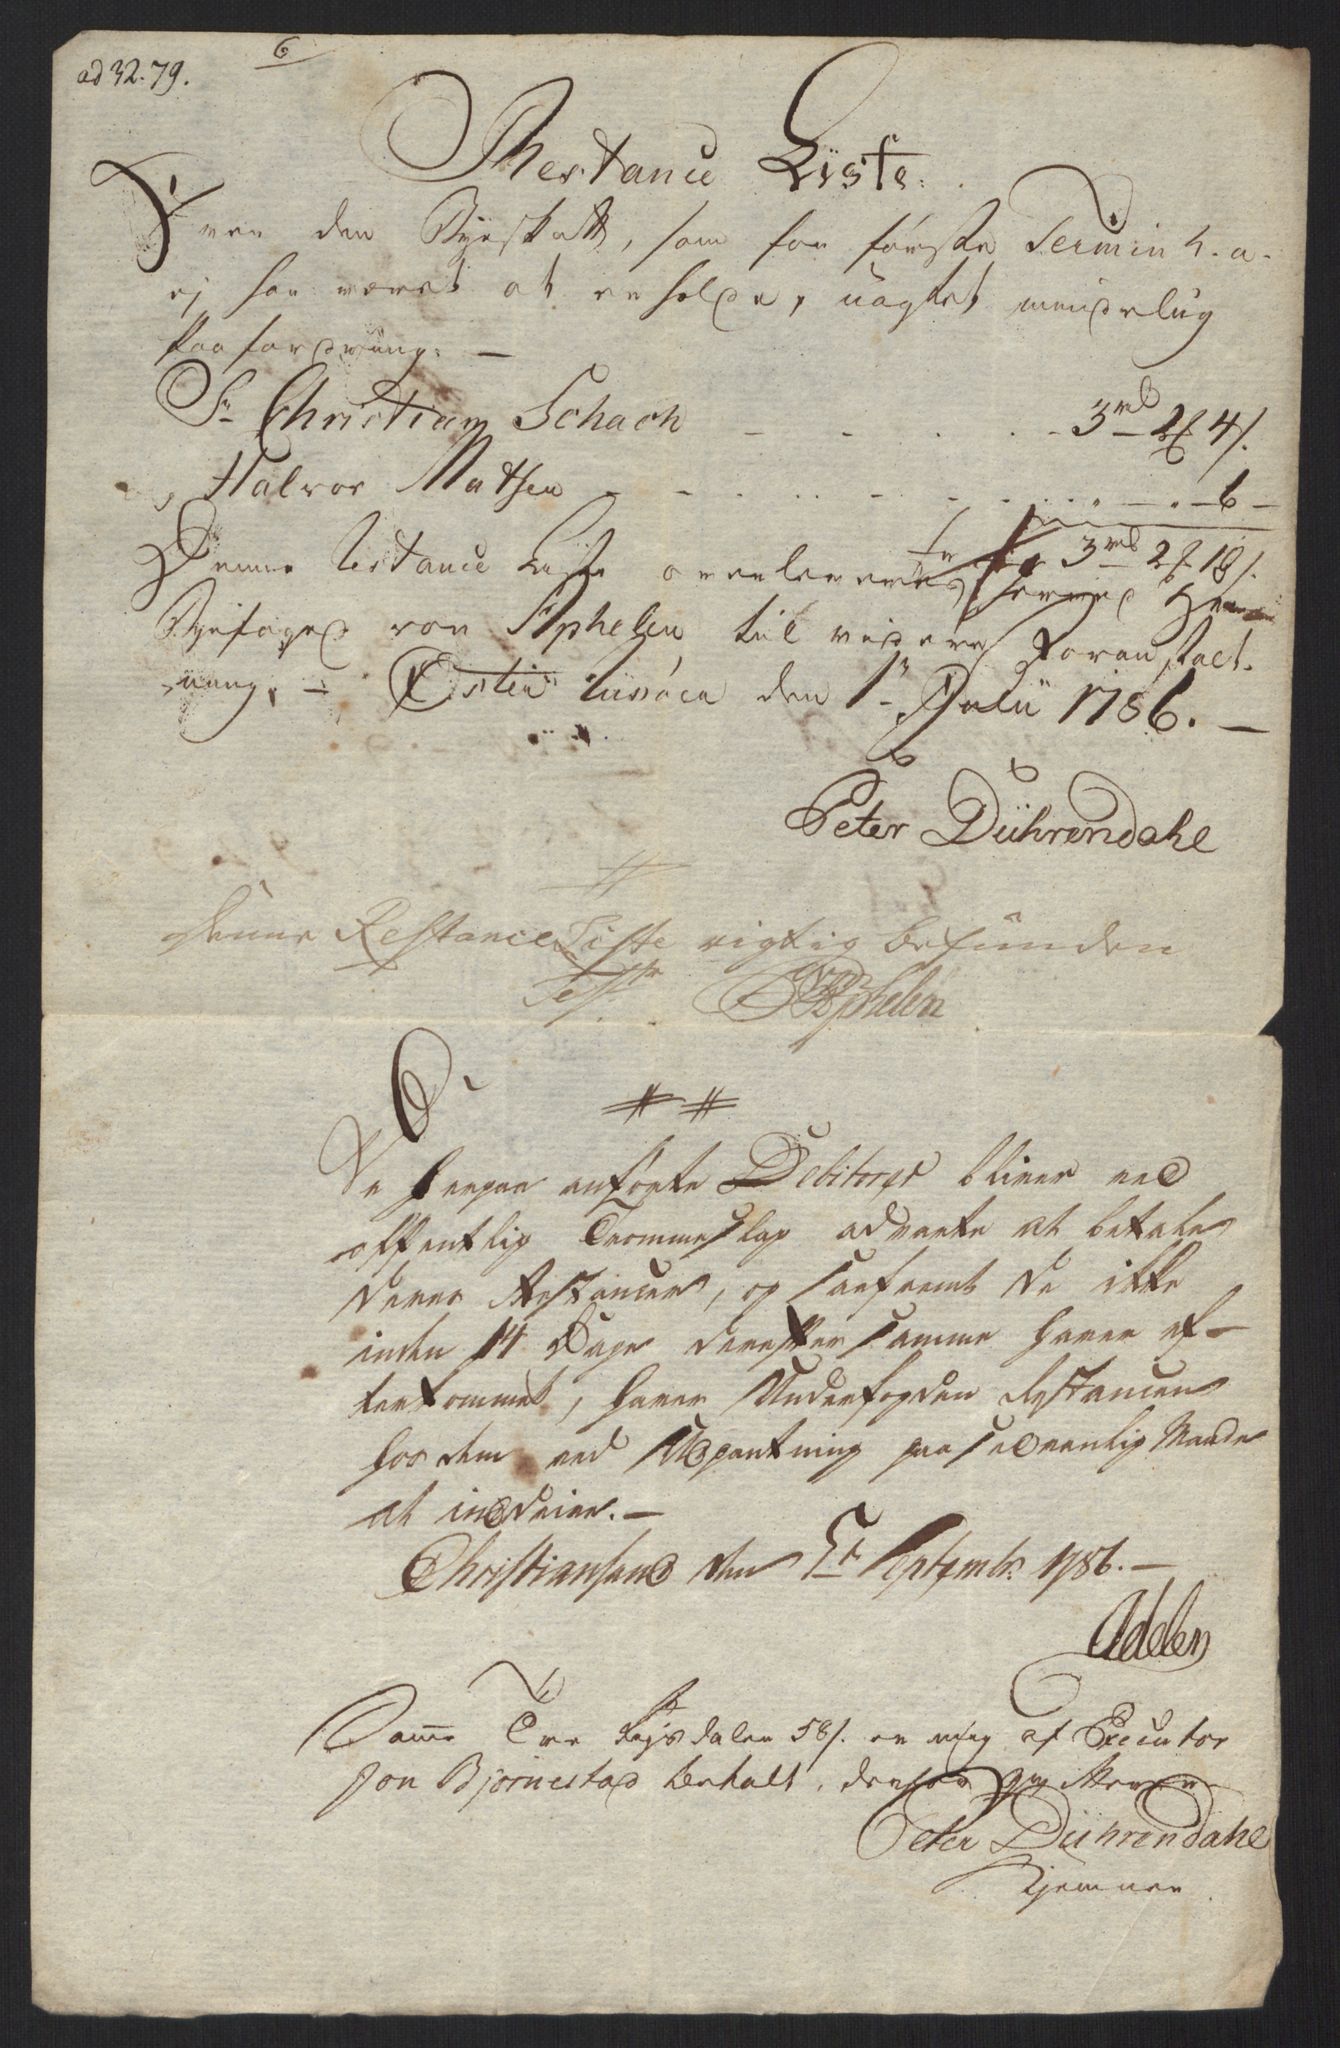 ad 32.79.
6
Restance Liste
Over den Byeskatt, som for første Termin h. a.
ej har været at erholde, uagtet mindelig
paafordring. —
Sr Christian Schach - - - - 3rd 2# 4s.
„ Halvor Matsen - - - - „ - „ - 6 -
3rd 2# 18s.
Denne Restance Liste overleveres herved Herr
Byefoged von Aphelen til videre Foranstalt-
ning. — Øster Riisøer den 1te Julii 1786. —
Peter Dührendahl
Denne Restance Liste rigtig befunden
Test. Aphelen
De herpaa anførte Debitores bliver ved
offentlig Trommeslag advarte at betale
deres Restancer, og saafremt de ikke
inden 14 Dage derefter samme haver ef-
terkommet, haver Underfogden Restancen
hos dem ved Udpantning paa sædvanlig Maade
at inddrive. —
Christiansand den 5te Septembr 1786. —
Adeler
Samme Tre Rigsdaler 58s. er mig af Executor
Jon Bjørnestad betalt, derfor qviterer
Peter Dührendahl
Kjemner